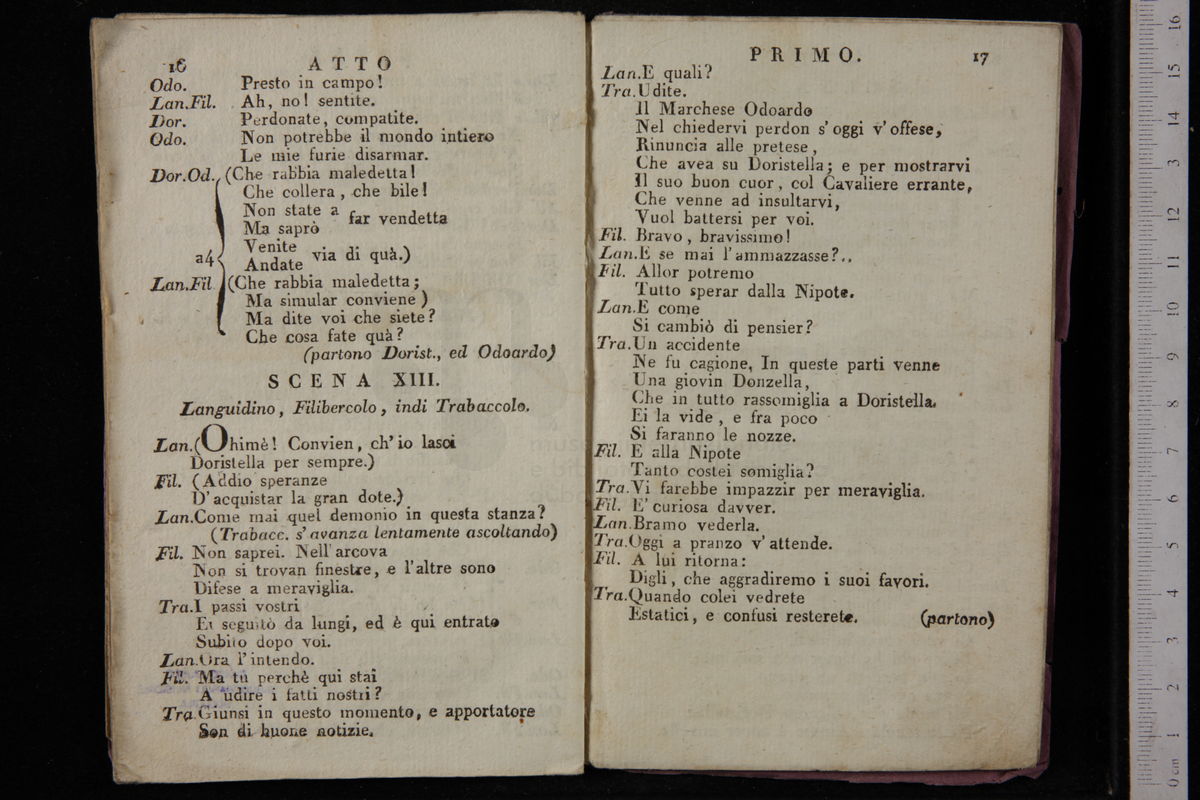 16 ATTO
Odo. Presto in campo!
Lan.Fil. Ah, no! sentite.
Dor. Perdonate, compatite.
Odo. Non potrebbe il mondo intiero
Le mie furie disarmar.
Dor.Od. (Che rabbia maledetta!
Che collera, che bile!
Non state a
Ma saprò far vendetta
a4 Venite
Andate via di quà.)
Lan.Fil (Che rabbia maledetta;
Ma simular conviene)
Ma dite voi che siete?
Che cosa fate quà?
(partono Dorist., ed Odoardo)
SCENA XIII.
Languidino, Filibercolo, indi Trabaccolo.
Lan.(Ohimè! Convien, ch' io lasci
Doristella per sempre.)
Fil. (Addio speranze
D' acquistar la gran dote.)
Lan.Come mai quel demonio in questa stanza?
(Trabacc. s' avanza lentamente ascoltando)
Fil. Non saprei. Nell' arcova
Non si trovan finestre, e l'altre sono
Difese a meraviglia.
Tra.I passi vostri
Ei seguitò da lungi, ed è qui entrato
Subito dopo voi.
Lan.Ora l'intendo.
Fil. Ma tu perchè qui stai
A udire i fatti nostri?
Tra.Giunsi in questo momento, e apportatore
Son di buone notizie.
PRIMO. 17
Lan.E quali?
Tra.Udite.
Il Marchese Odoardo
Nel chiedervi perdon s' oggi v' offese,
Rinuncia alle pretese,
Che avea su Doristella; e per mostrarvi
Il suo buon cuor, col Cavaliere errante,
Che venne ad insultarvi,
Vuol battersi per voi.
Fil. Bravo, bravissimo!
Lan.E se mai l'ammazzasse?..
Fil. Allor potremo
Tutto sperar dalla Nipote.
Lan.E come
Si cambiò di pensier?
Tra.Un accidente
Ne fu cagione, In queste parti venne
Una giovin Donzella,
Che in tutto rassomiglia a Doristella.
Ei la vide, e fra poco
Si faranno le nozze.
Fil. E alla Nipote
Tanto costei somiglia?
Tra.Vi farebbe impazzir per meraviglia.
Fil. E' curiosa davver.
Lan.Bramo vederla.
Tra.Oggi a pranzo v' attende.
Fil. A lui ritorna:
Digli, che aggradiremo i suoi favori.
Tra.Quando colei vedrete
Estatici, e confusi resterete. (partono)
0 cm 1 2 3 4 5 6 7 8 9 10 11 12 13 14 15 16